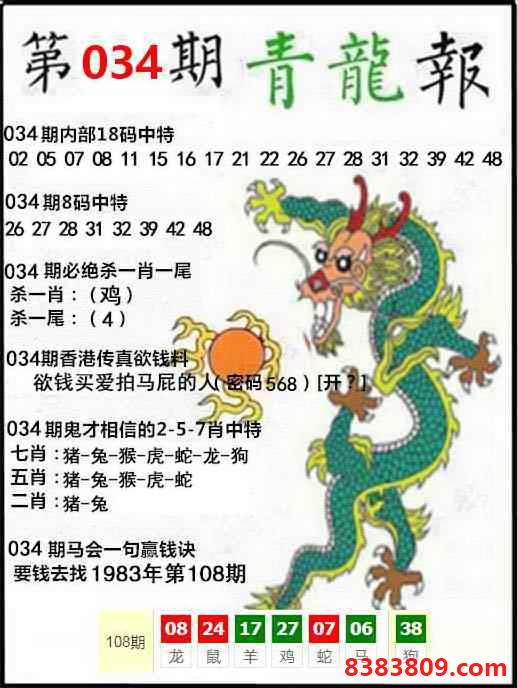 第034期青龍報
034期内部18码中特
02 05 07 08 11 15 16 17 21 22 26 27 28 31 32 39 42 48
034期8码中特
26 27 28 31 32 39 42 48
034期必绝杀一肖一尾
杀一肖：（鸡）
杀一尾：（4）
034期香港传真欲钱料
欲钱买爱拍马屁的人(密码568)[开？]
034期鬼才相信的2-5-7肖中特
七肖：猪-兔-猴-虎-蛇-龙-狗
五肖：猪-兔-猴-虎-蛇
二肖：猪-兔
034期马会一句赢钱诀
要钱去找1983年第108期
108期 08 24 17 27 07 06 38
龙 鼠 羊 鸡 蛇 马 狗
8383809.com